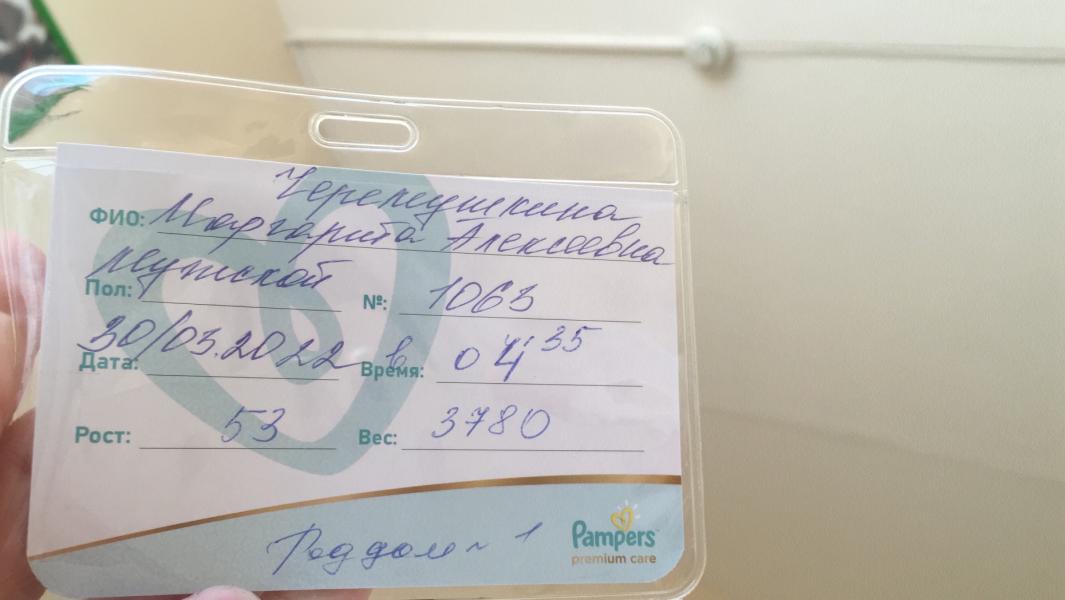 Черемушкина
ФИО: Маргарита Алексеевна
Пол: мужской №: 1063
Дата: 30/03.2022 в Время: 04 35
Рост: 53 Вес: 3780
Роддом ~ 1
Pampers
premium care